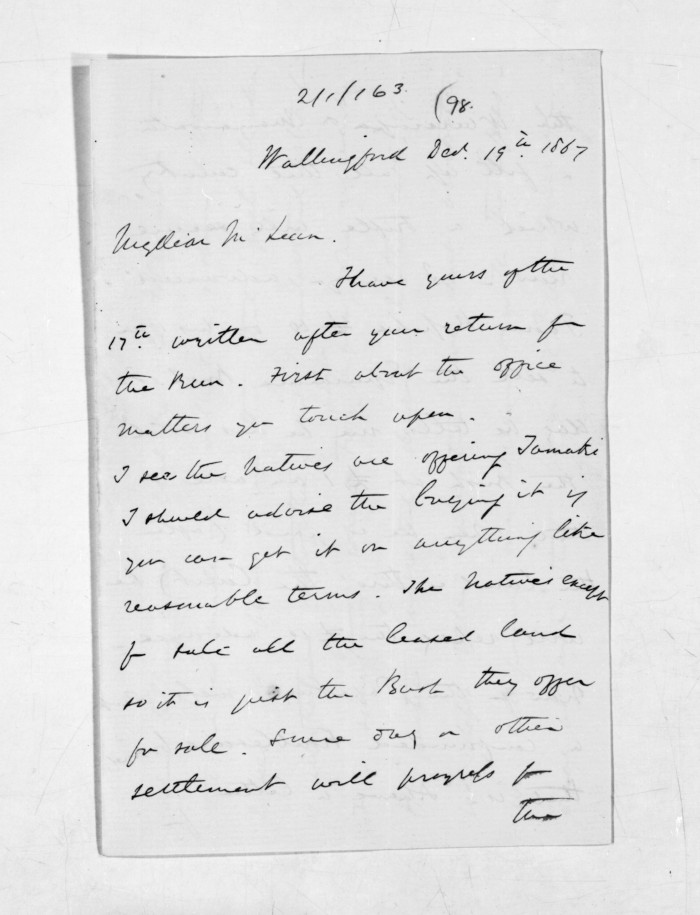 2/1/163.
(98.
Wallingford Decr. 19th 1867
My dear McLean.
I have yours of the
17th written after your return from
the Run. First about the office
matters you touch upon.
I see the Natives are offering Tamaki
I should advise the buying it if
you can get it on anything like
reasonable terms. The Natives except
fr sale all the leased land
so it is just the Bush they offer
for sale. Some day or other
settlement will progress fr